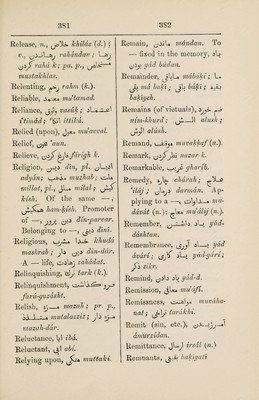 381
Release, n., خلاص khilás (d.) ;
v., رهاندن rahándan ; رها
کردن rahá k; pa. p., مستخلص
mustakhlas.
Relenting, رحم rahm (k.).
Reliable, معتمد mu'tamad.
Reliance, وثوق wasúk ; اعتماد
i'timád ; اتکا ittiká.
Relied (upon), معول mu'awal.
Relief, عون 'aun.
Relieve, فارغ کردن fárigh k.
Religion, دین din, pl. ادیان
adyán; مذهب mazhab; ملت
millat, pl., ملل milal ; کیش
kish. Of the same —,
همکیش ham-kísh. Promoter
of —, دین پرور din-parvar.
Belonging to —, دینی dini.
Religious, خدا مشرب khudá
mashrab ; دین دار din-dár.
A — life, زهادت zahádat.
Relinquishing, ترک tark (k.).
Relinquishment, فروگذاشت
farú-guzásht.
Relish, مزه mazah ; pr. p.,
متلذذ mutalazziz ; مزه دار
mazah-dár.
Reluctance, ابا ibá.
Reluctant, ابی abí.
Relying upon, متکی muttakí.
382
Remain, ماندن mándan. To
— fixed in the memory, یاد
بودن yád búdan.
Remainder, مابقا mábáki ; ما
بقی má baki ; باقی báki ; بقیه
bakíyah.
Remains (of victuals), نیم خورد
ním-khurd ; الوش alush ;
اولوش alúsh.
Remand, موقوف muvakkaf (n.).
Remark, نظر کردن nazar k.
Remarkable, غریب gharíb.
Remedy, چاره chárah ; علاج
'iláj ; درمان darmán. Ap-
plying to a —, مداوات mu-
dávát (n.); معالج mu'álij (n.).
Remember, یاد داشتن yád-
dáshtan.
Remembrance, یاد آوری yád
ávári ; یاد گاری yád-gári ;
ذکر zikr.
Remind, یاد دادن yád-d.
Remission, معافی mu'áfí.
Remissness, مراهنت muráha-
nat ; تراخی tarákhi.
Remit (sin, etc.), آمرزیدن
ámurzídan.
Remittance, ارسال irsál (n.)
Remnants, بقیات bakíyati